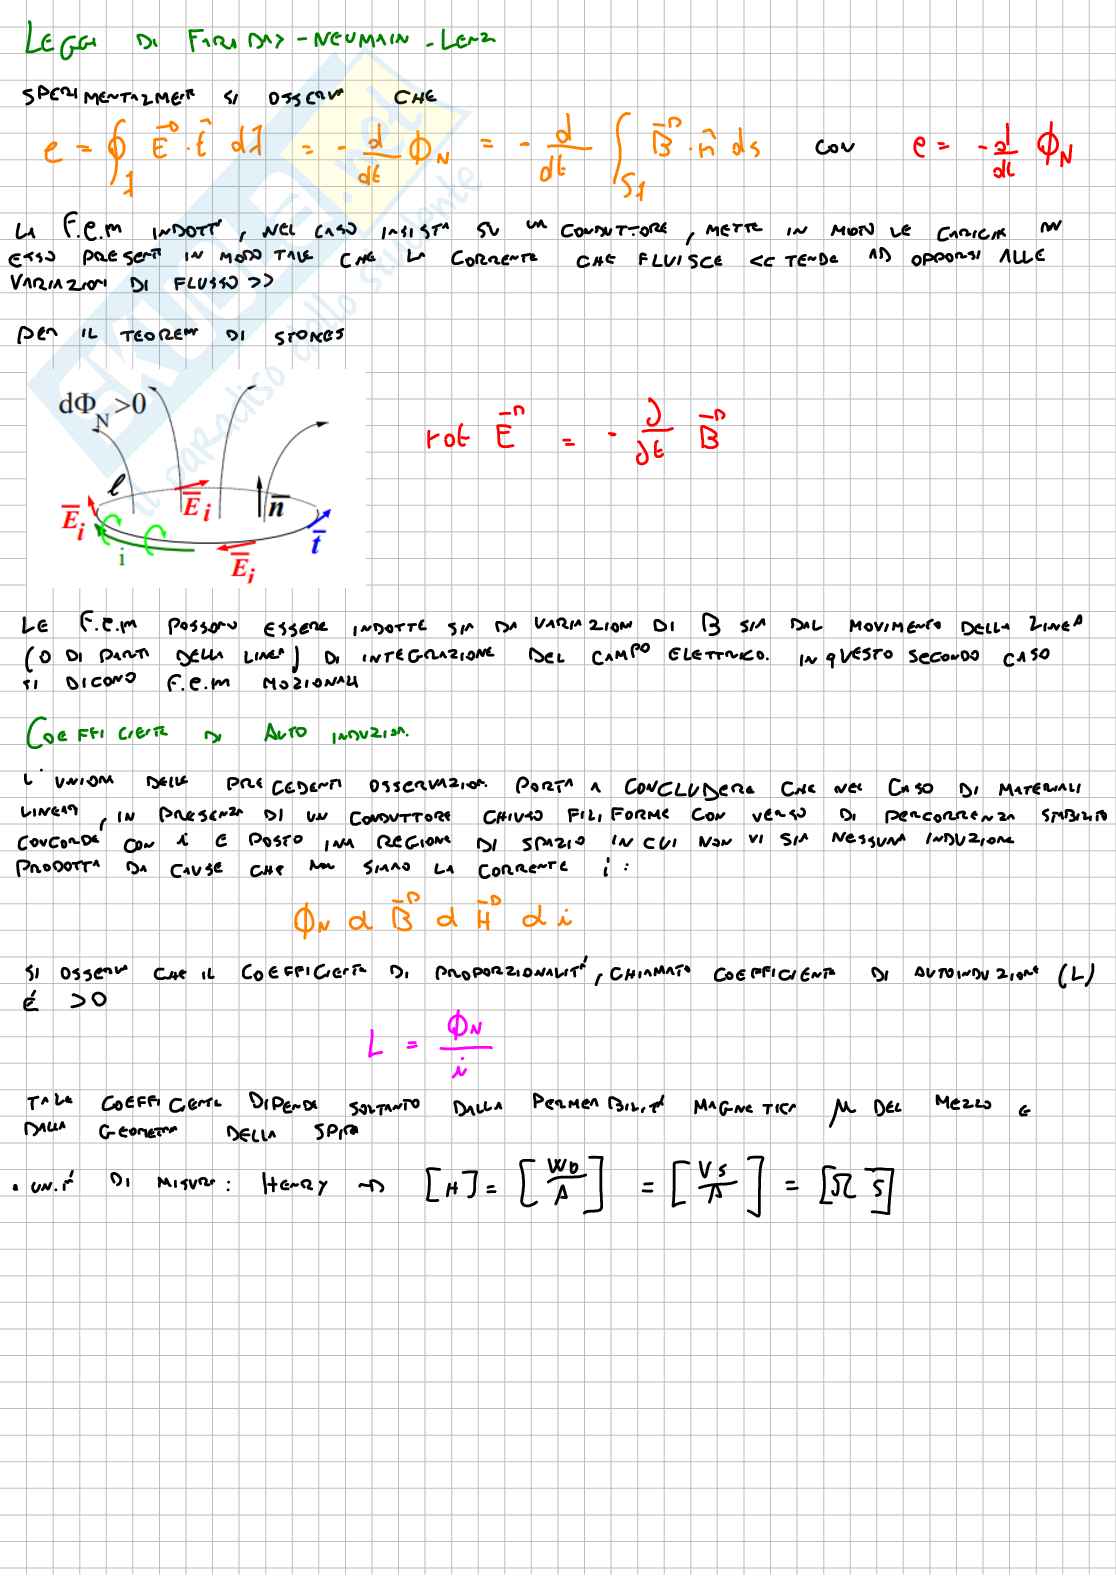 LEGGI DI FARADAY-NEUMANN-LENZ
SPERIMENTALMENTE SI OSSERVA CHE
e = ∮_l E⃗ · t̂ dl = - d/dt ϕ_N = - d/dt ∫_{S_l} B⃗ · n̂ ds CON e = - d/dt ϕ_N
LA F.e.m INDOTTA, NEL CASO INSISTA SU UN CONDUTTORE, METTE IN MOTO LE CARICHE IN
ESSO PRESENTI IN MODO TALE CHE LA CORRENTE CHE FLUISCE << TENDE AD OPPORSI ALLE
VARIAZIONI DI FLUSSO >>
PER IL TEOREMA DI STOKES
dΦ_N >0
rot E⃗ = - ∂/∂t B⃗
ℓ
E̅_i
E̅_i
n̅
t̅
i
E̅_i
LE F.e.m POSSONO ESSERE INDOTTE SIA DA VARIAZIONI DI B SIA DAL MOVIMENTO DELLA LINEA
(O DI PARTI DELLA LINEA) DI INTEGRAZIONE DEL CAMPO ELETTRICO. IN QUESTO SECONDO CASO
SI DICONO F.e.m MOZIONALI
COEFFICIENTE DI AUTO INDUZIONE
L'UNIONE DELLE PRECEDENTI OSSERVAZIONI PORTA A CONCLUDERE CHE NEL CASO DI MATERIALI
LINEARI, IN PRESENZA DI UN CONDUTTORE CHIUSO FILIFORME CON VERSO DI PERCORRENZA STABILITO
CONCORDE CON i E POSTO IN REGIONE DI SPAZIO IN CUI NON VI SIA NESSUNA INDUZIONE
PRODOTTA DA CAUSE CHE NON SIANO LA CORRENTE i :
ϕ_N α B⃗ α H⃗ α i
SI OSSERVA CHE IL COEFFICIENTE DI PROPORZIONALITÁ, CHIAMATO COEFFICIENTE DI AUTOINDUZIONE (L)
É >0
L = ϕ_N / i
TALE COEFFICIENTE DIPENDE SOLTANTO DALLA PERMEABILITÁ MAGNETICA μ DEL MEZZO E
DALLA GEOMETRIA DELLA SPIRA
• UNITÁ DI MISURA: HENRY → [H] = [Wb/A] = [VS/A] = [Ω S]
SKUOLA.net
il paradiso dello studente